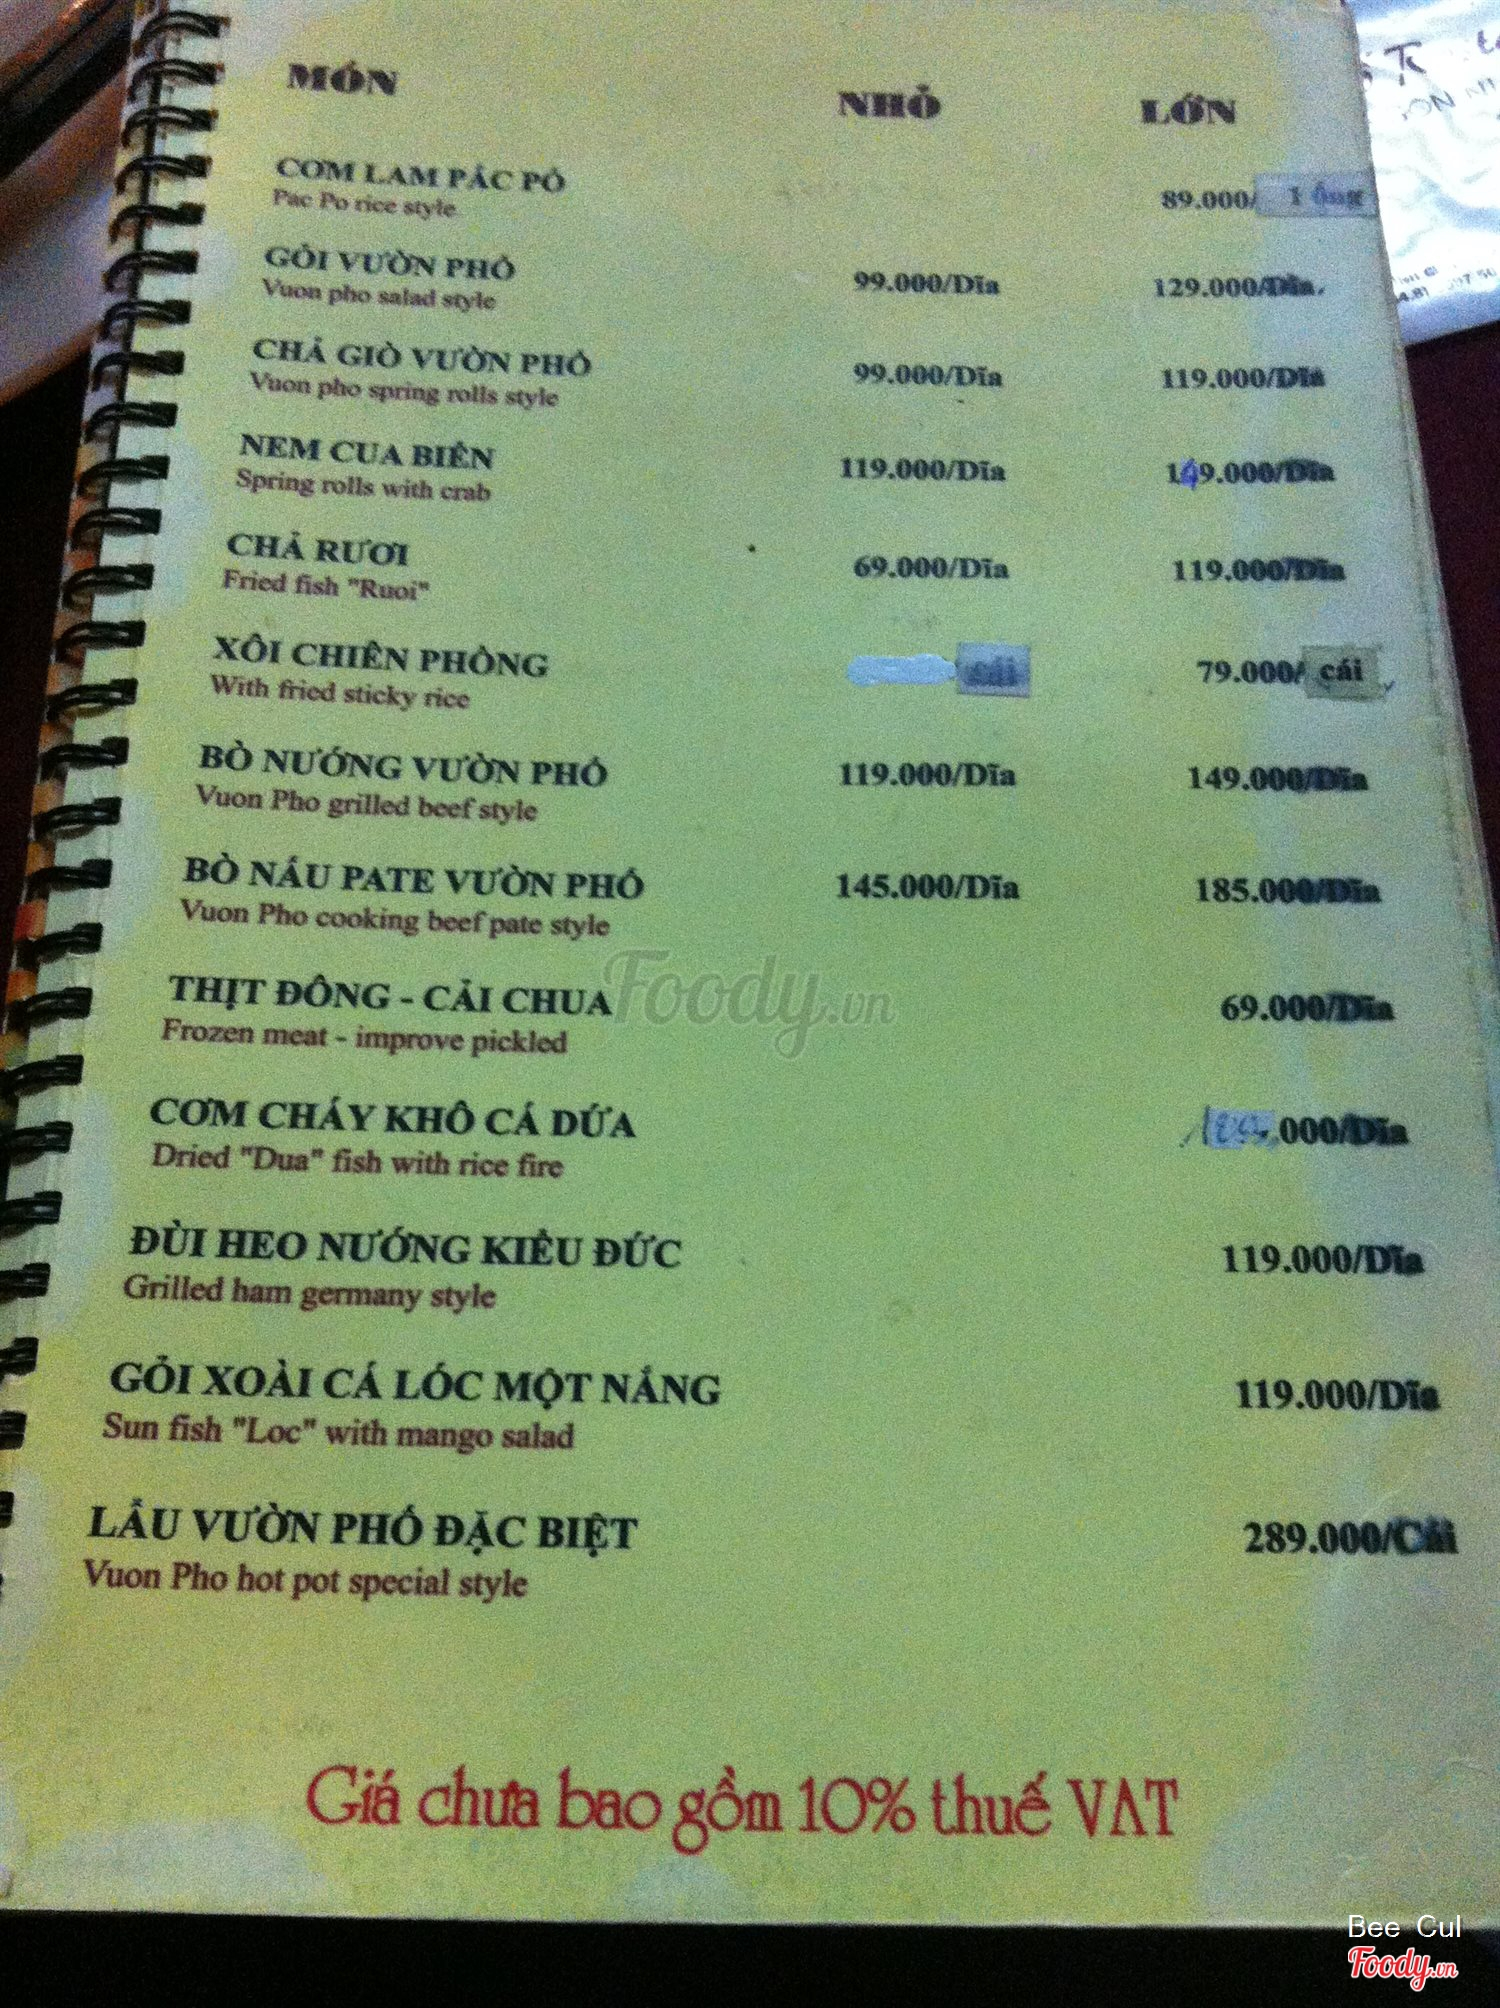 MÓN NHỎ LỚN
CƠM LAM PÁC PÓ 89.000/ 1 ống
Pac Po rice style
GỎI VƯỜN PHỐ 99.000/Dĩa 129.000/Dĩa.
Vuon pho salad style
CHẢ GIÒ VƯỜN PHỐ 99.000/Dĩa 119.000/Dĩa
Vuon pho spring rolls style
NEM CUA BIỂN 119.000/Dĩa 149.000/Dĩa
Spring rolls with crab
CHẢ RƯƠI 69.000/Dĩa 119.000/Dĩa
Fried fish "Ruoi"
XÔI CHIÊN PHỒNG cái 79.000/ cái
With fried sticky rice
BÒ NƯỚNG VƯỜN PHỐ 119.000/Dĩa 149.000/Dĩa
Vuon Pho grilled beef style
BÒ NẤU PATE VƯỜN PHỐ 145.000/Dĩa 185.000/Dĩa
Vuon Pho cooking beef pate style
THỊT ĐÔNG - CẢI CHUA 69.000/Dĩa
Frozen meat - improve pickled
CƠM CHÁY KHÔ CÁ DỨA .000/Dĩa
Dried "Dua" fish with rice fire
ĐÙI HEO NƯỚNG KIỂU ĐỨC 119.000/Dĩa
Grilled ham germany style
GỎI XOÀI CÁ LÓC MỘT NẮNG 119.000/Dĩa
Sun fish "Loc" with mango salad
LẨU VƯỜN PHỐ ĐẶC BIỆT 289.000/Cái
Vuon Pho hot pot special style
Giá chưa bao gồm 10% thuế VAT
Foody.vn
Bee Cul
Foody.vn